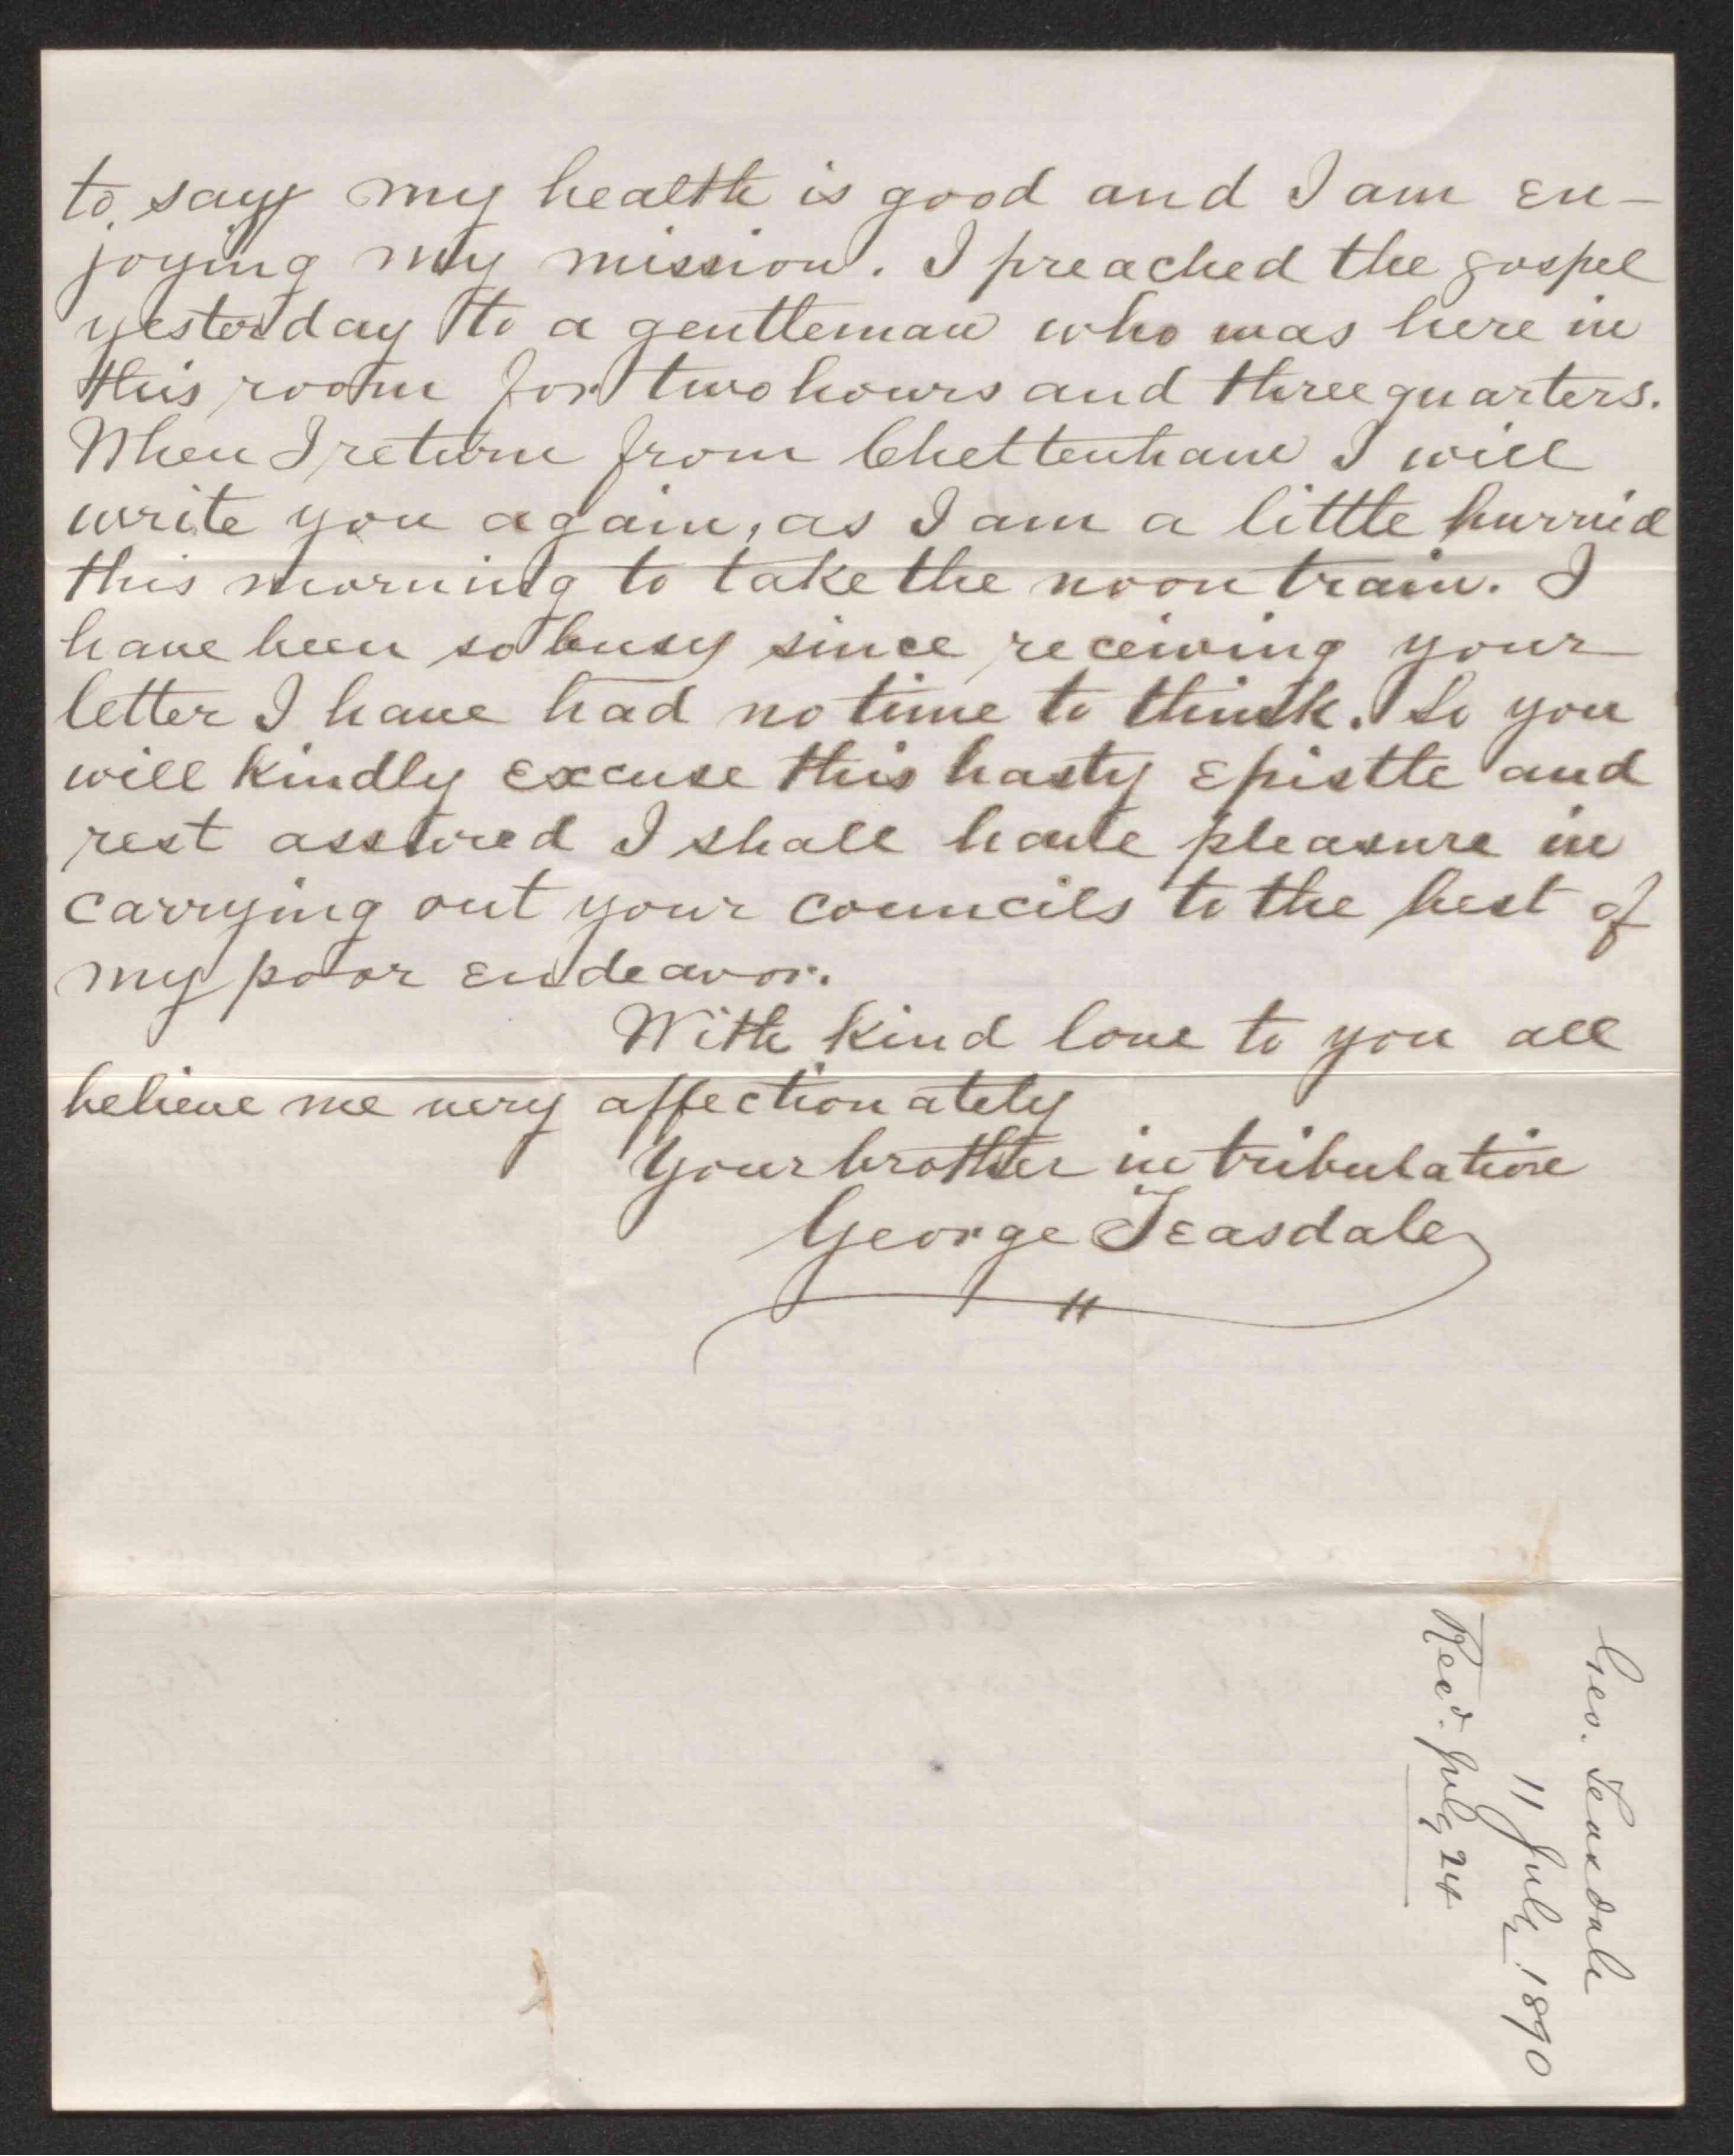 to say my health is good and I am en-
joying my mission. I preached the gospel
yesterday to a gentleman who was here in
this room for two hours and three quarters.
When I return from Cheltenham I will
write you again, as I am a little hurried
this morning to take the noon train. I
have been so busy since receiving your
letter I have had no time to think. So you
will kindly excuse this hasty epistle and
rest assured I shall have pleasure in
carrying out your councils to the best of
my poor endeavor.
With kind love to you all
believe me very affectionately
Your brother in tribulation
George Teasdale
Geo. Teasdale
11 July 1890
Recd. July 24